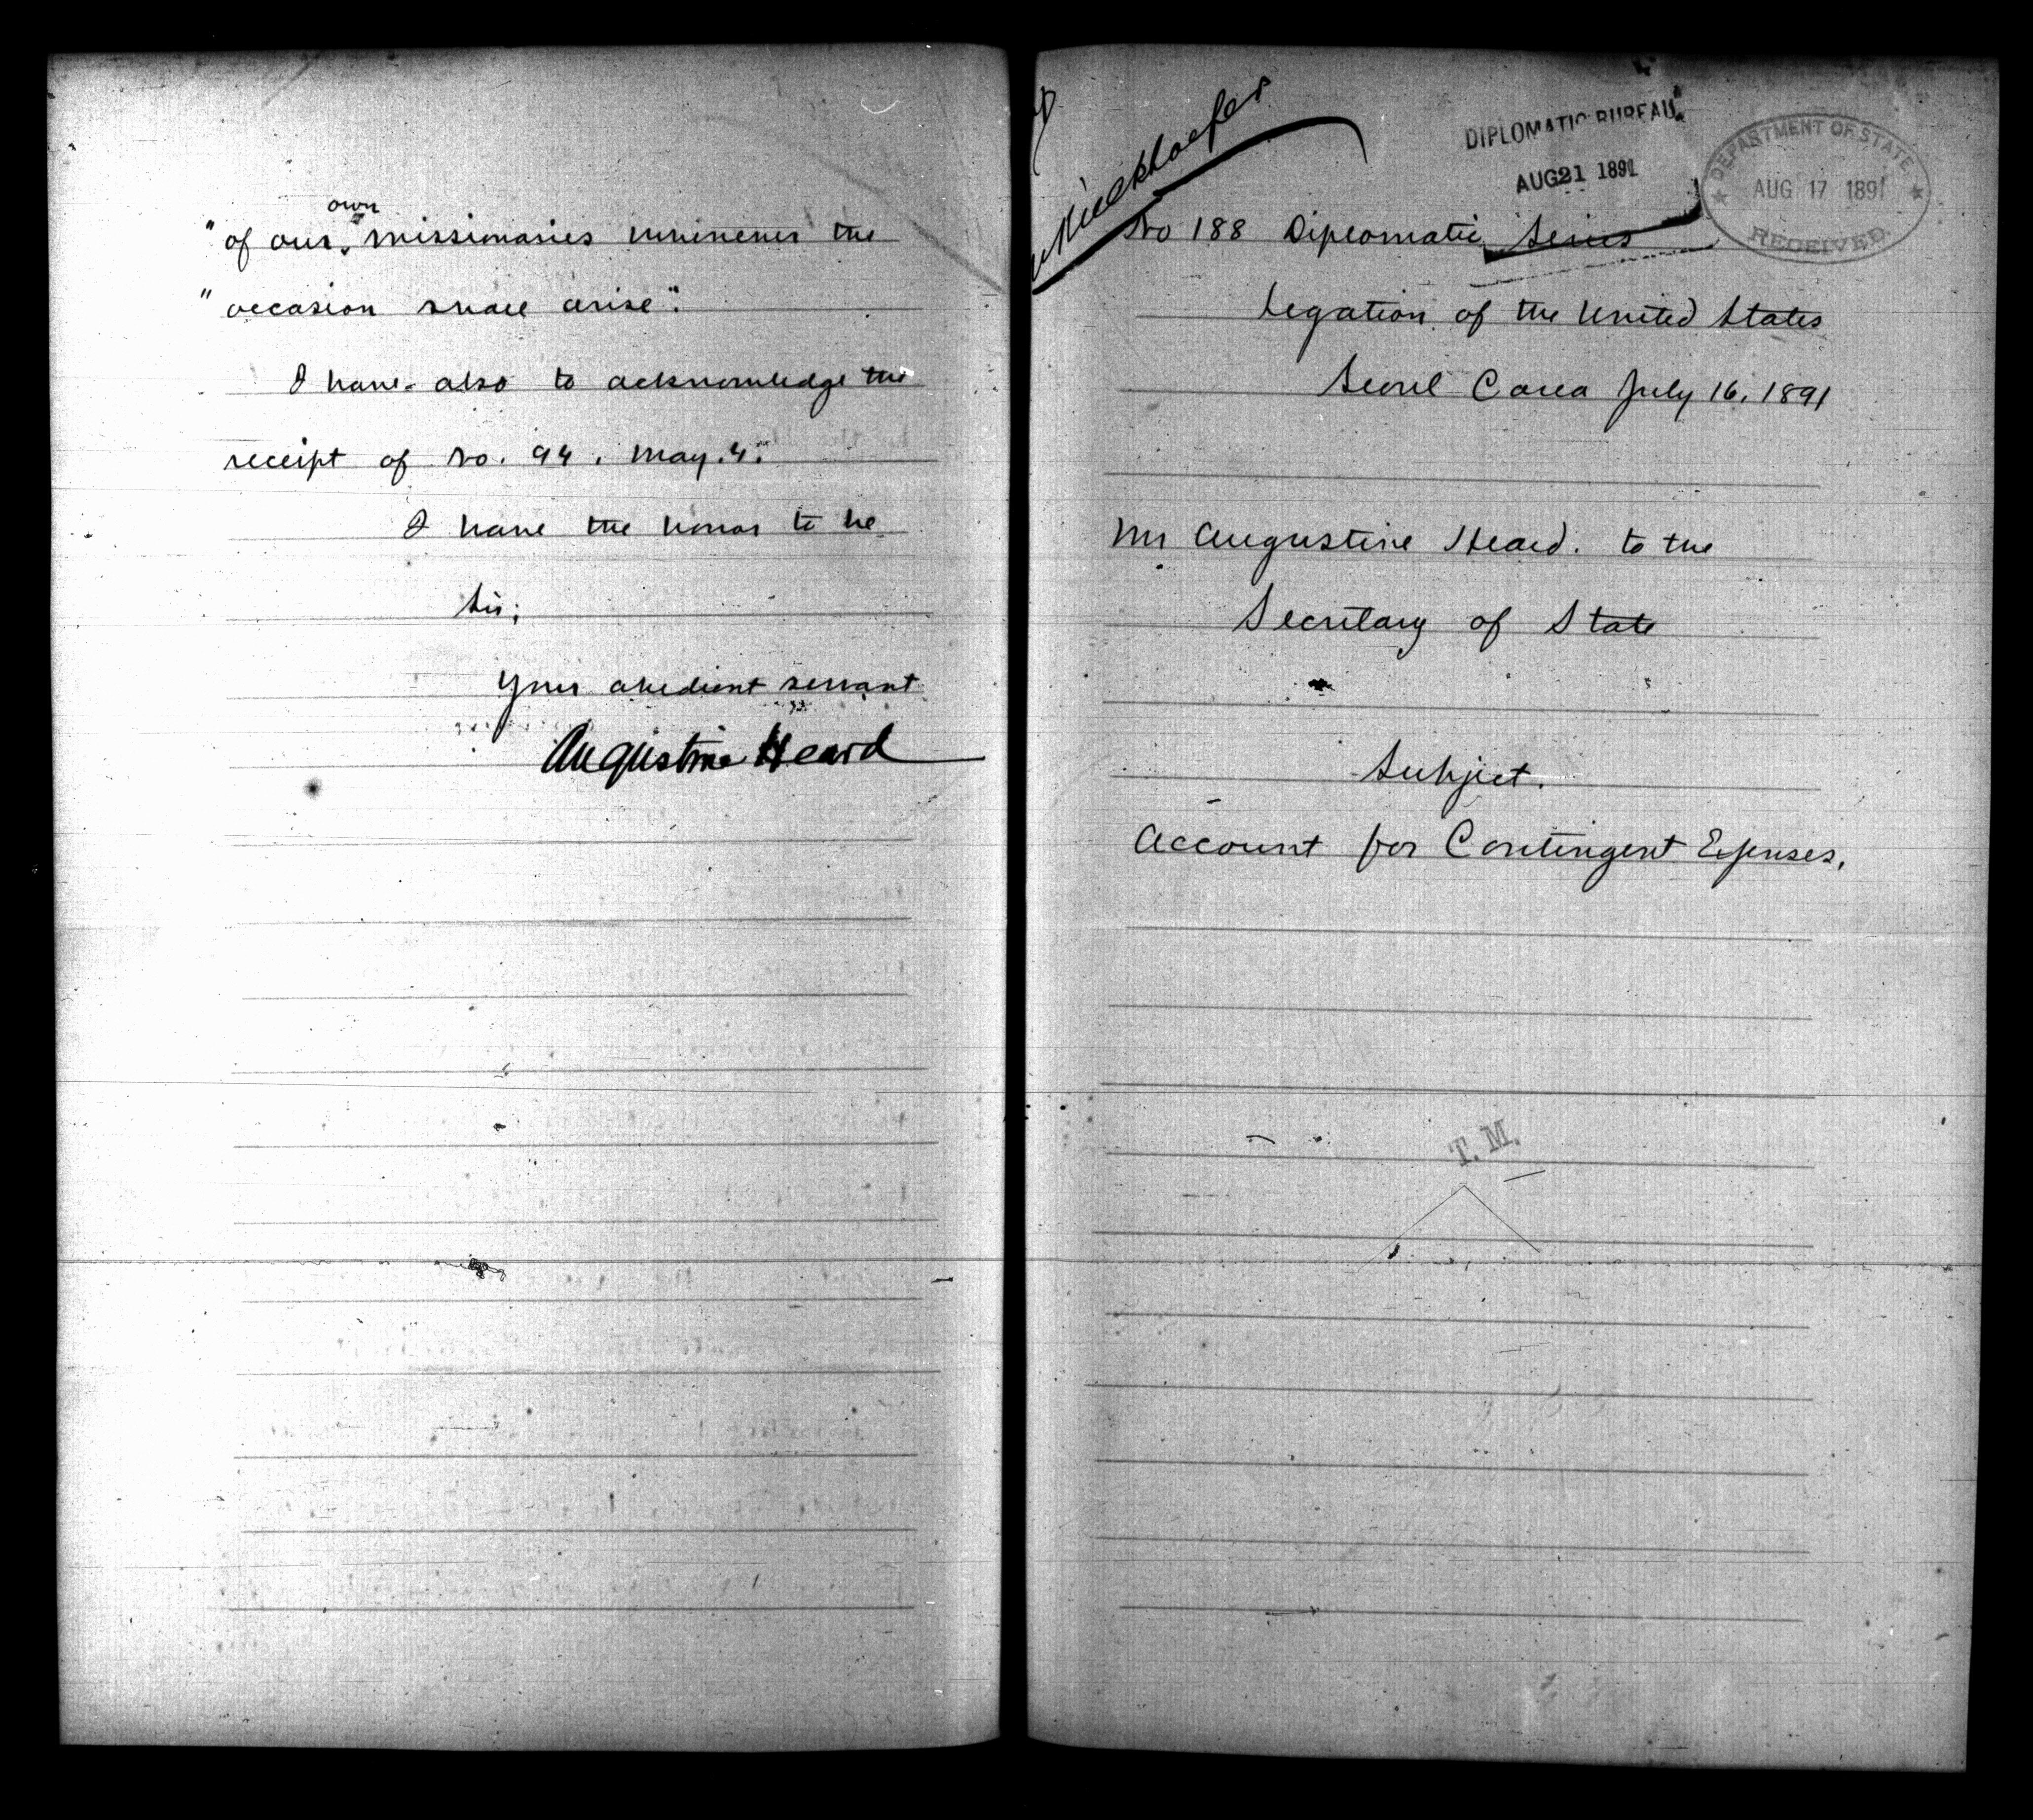 "of our own missionaries whenever the
"occasion shall arise".
I have also to acknowledge the
receipt of No. 94. May. 4.
I have the honor to be
Sir;
Your obedient servant
Augustine Heard
DIPLOMATIC BUREAU
AUG 21 1891
DEPARTMENT OF STATE
AUG 17 1891
RECEIVED
No 188 Diplomatic Series
Legation of the United States
Seoul Corea July 16, 1891
Mr Augustine Heard. to the
Secretary of State
Subject.
Account for Contingent Expenses,
T. M.